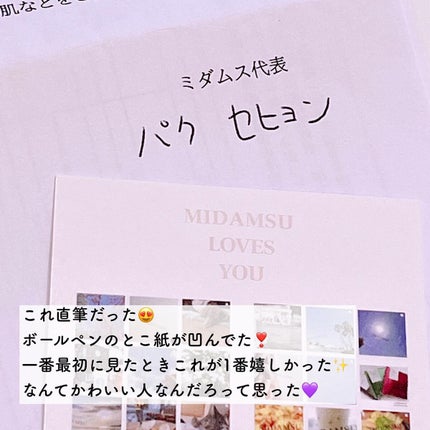 肌などをこ
ミダムス代表
パク セヒョン
MIDAMSU
LOVES
YOU
これ直筆だった😍
ボールペンのとこ紙が凹んでた❣️
一番最初に見たときこれが1番嬉しかった✨
なんてかわいい人なんだろって思った💜